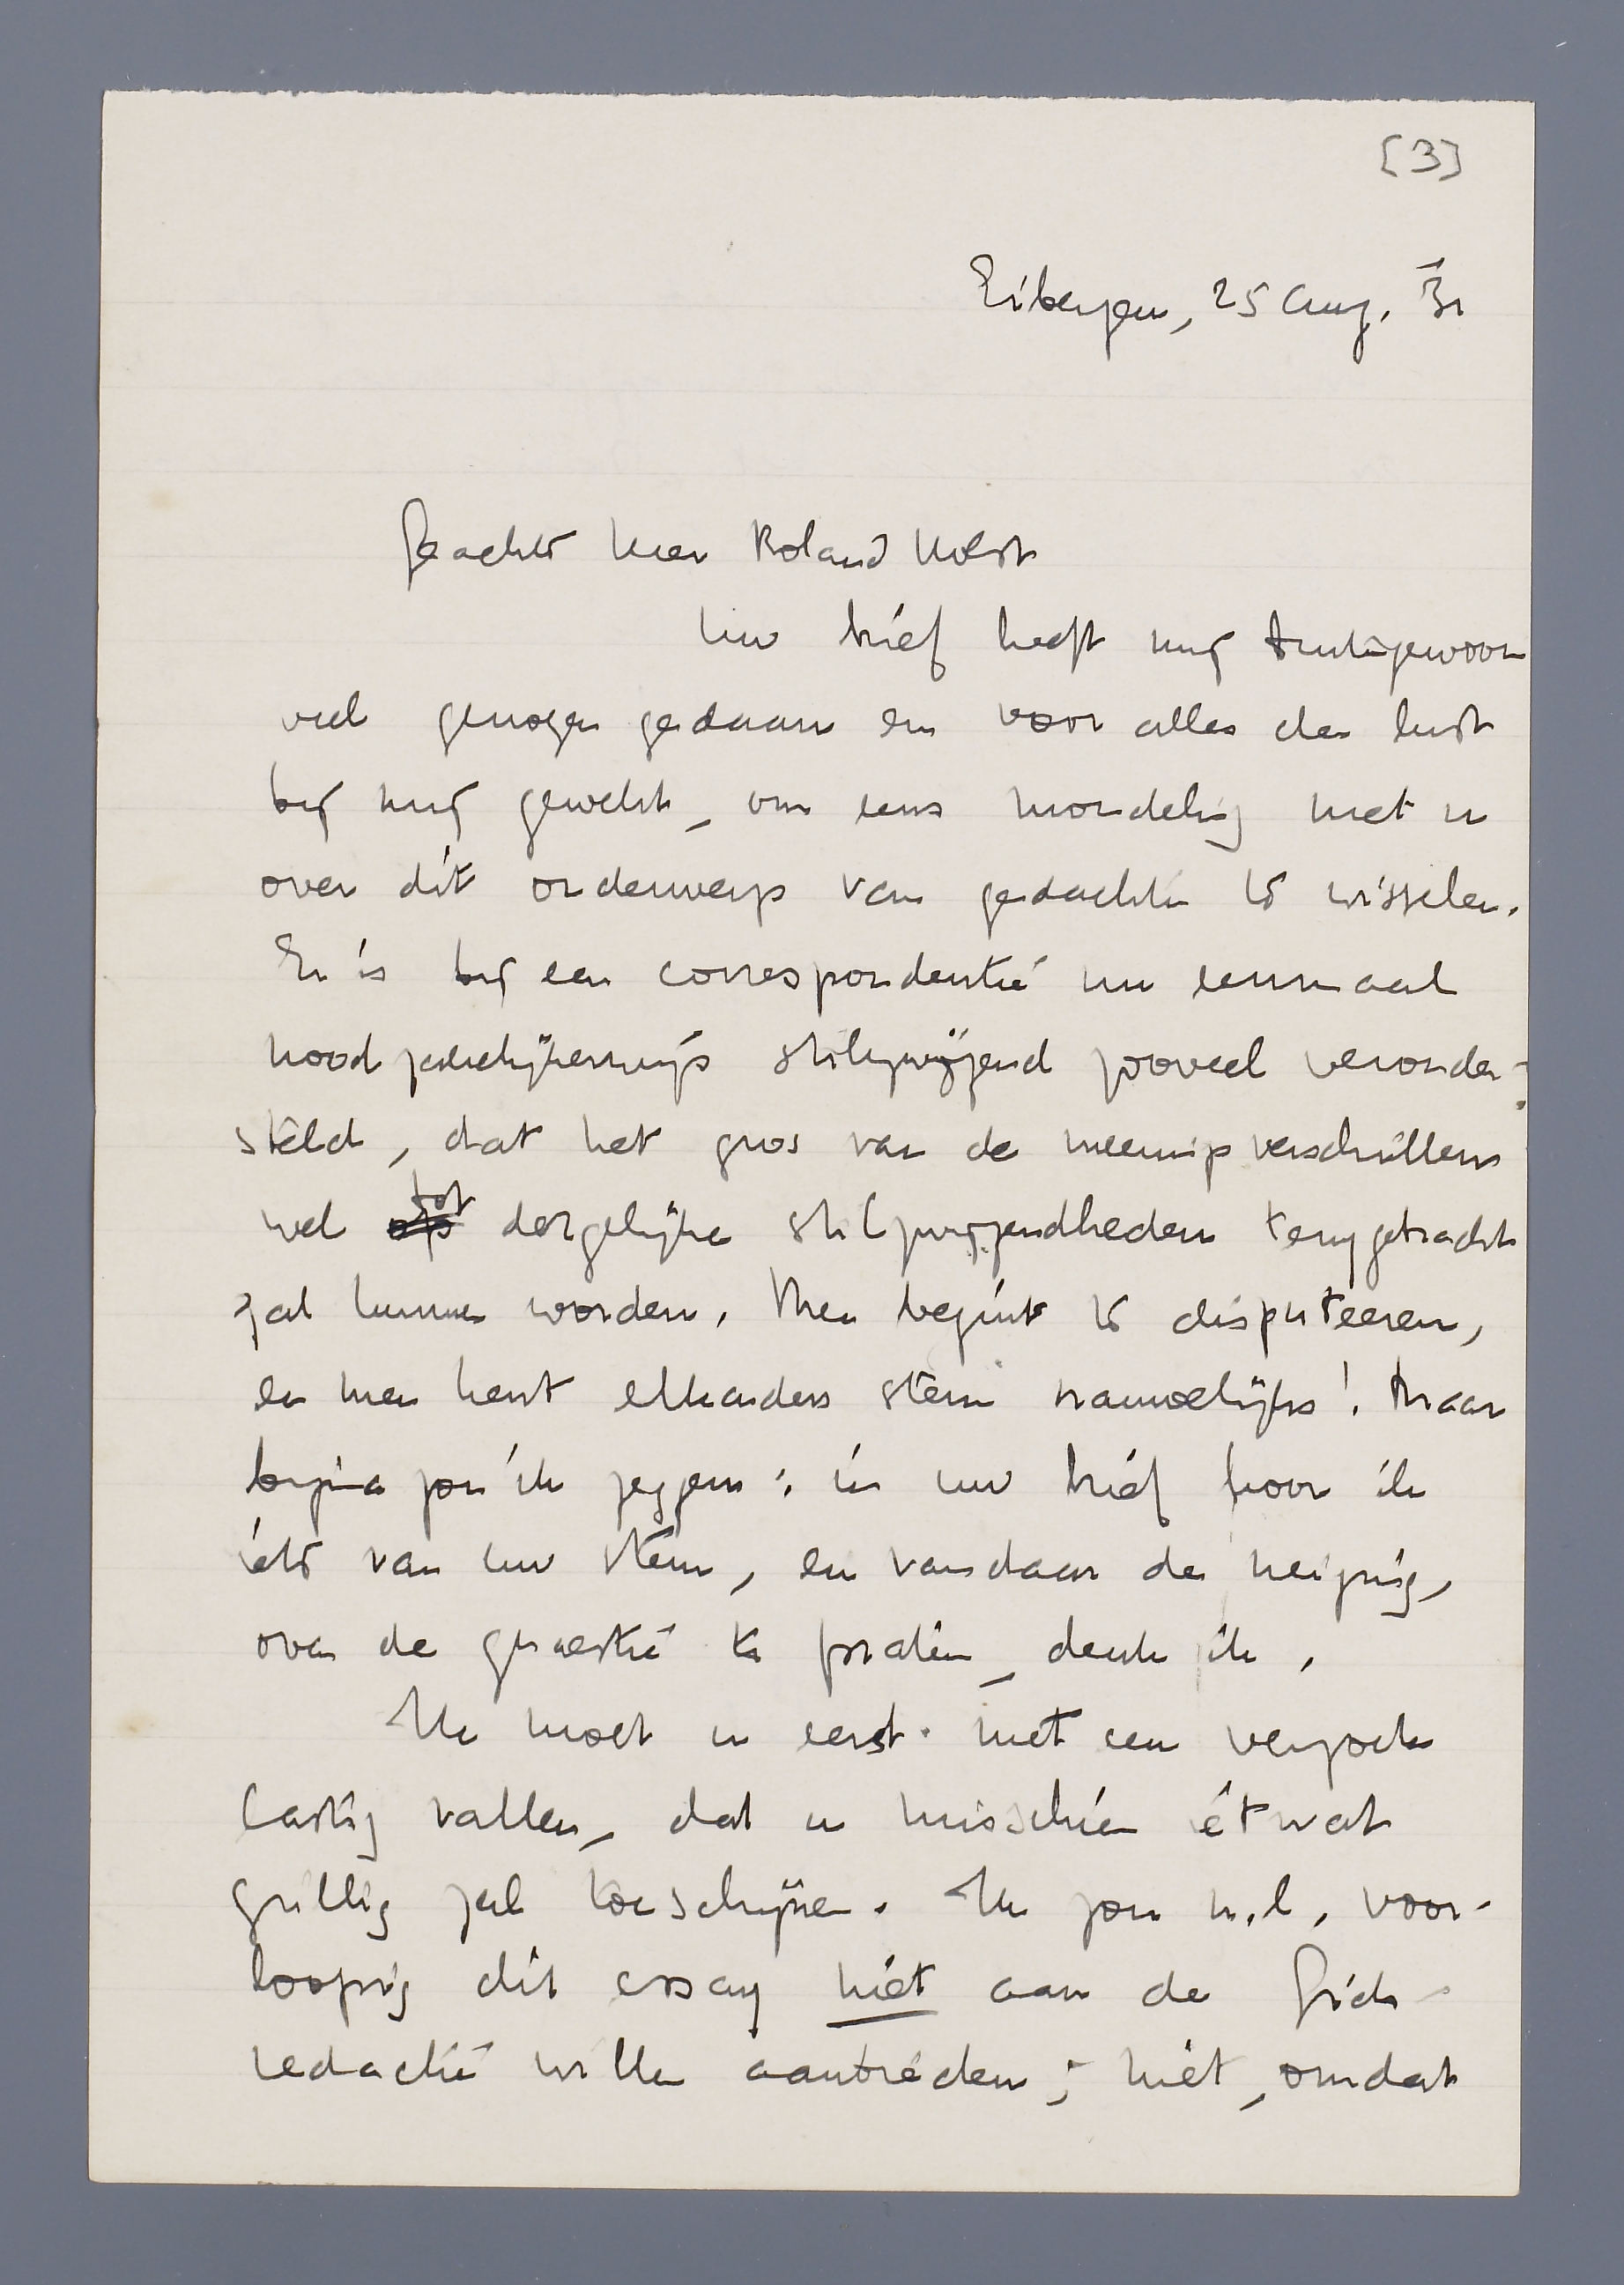 [3]
Eibergen, 25 Aug. '31
Geachte heer Roland Holst
Uw brief heeft mij buitengewoon
veel genoegen gedaan en voor alles de lust
bij mij gewekt, om eens mondeling met u
over dit onderwerp van gedachten te wisselen.
Er is bij een correspondentie nu eenmaal
noodzakelijkerwijs stilzwijgend zooveel veronder-
steld, dat het gros van de meeningsverschillen
wel tot dergelijke stilzwijgendheden teruggebracht
zal kunnen worden. Men begint te disputeeren,
en men kent elkanders stem nauwelijks! Maar
bijna zou ik zeggen: in uw brief hoor ik
iets van uw stem, en vandaar de neiging,
over de quaestie te praten, denk ik.
Ik moet u eerst met een verzoek
lastig vallen, dat u misschien ietwat
grillig zal toeschijnen. Ik zou n.l. voor-
loopig dit essay niet aan de Gids-
redactie willen aanbieden; niet, omdat